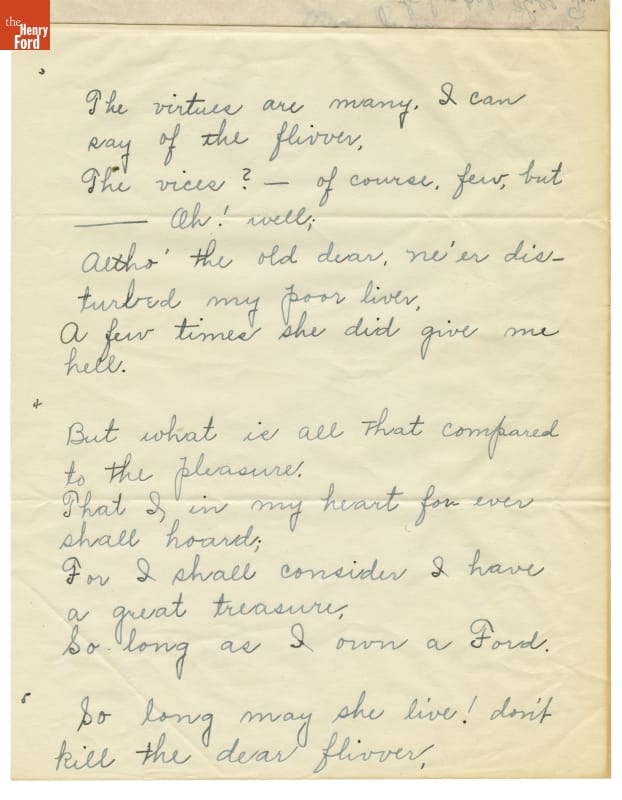 the
Henry
Ford
3
The virtues are many. I can
say of the flivver,
The vices? — of course, few, but
—— Oh! well;
Altho' the old dear, ne'er dis-
turbed my poor liver,
A few times she did give me
hell.
4
But what is all that compared
to the pleasure.
That I, in my heart for ever
shall hoard;
For I shall consider I have
a great treasure,
So long as I own a Ford.
5
So long may she live! don't
kill the dear flivver,